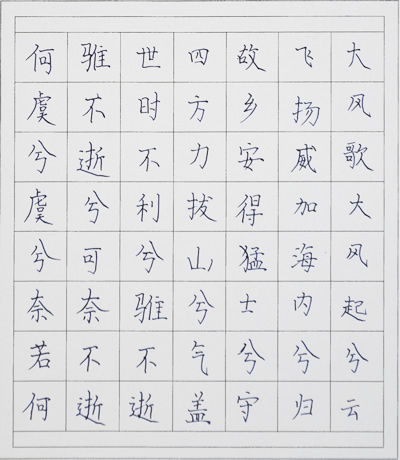 大风歌大风起兮云
飞扬威加海内兮归
故乡安得猛士兮守
四方力拔山兮气盖
世时不利兮骓不逝
骓不逝兮可奈不逝
何虞兮虞兮奈若何